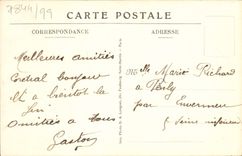 7844/99
CARTE POSTALE
CORRESPONDANCE
ADRESSE
Meilleures amitiés
Cordial bonjour
et à bientôt le
Amitiés à tous
Gaston
Mr Mario Richard
à
par Envermeu
Seine inférieure